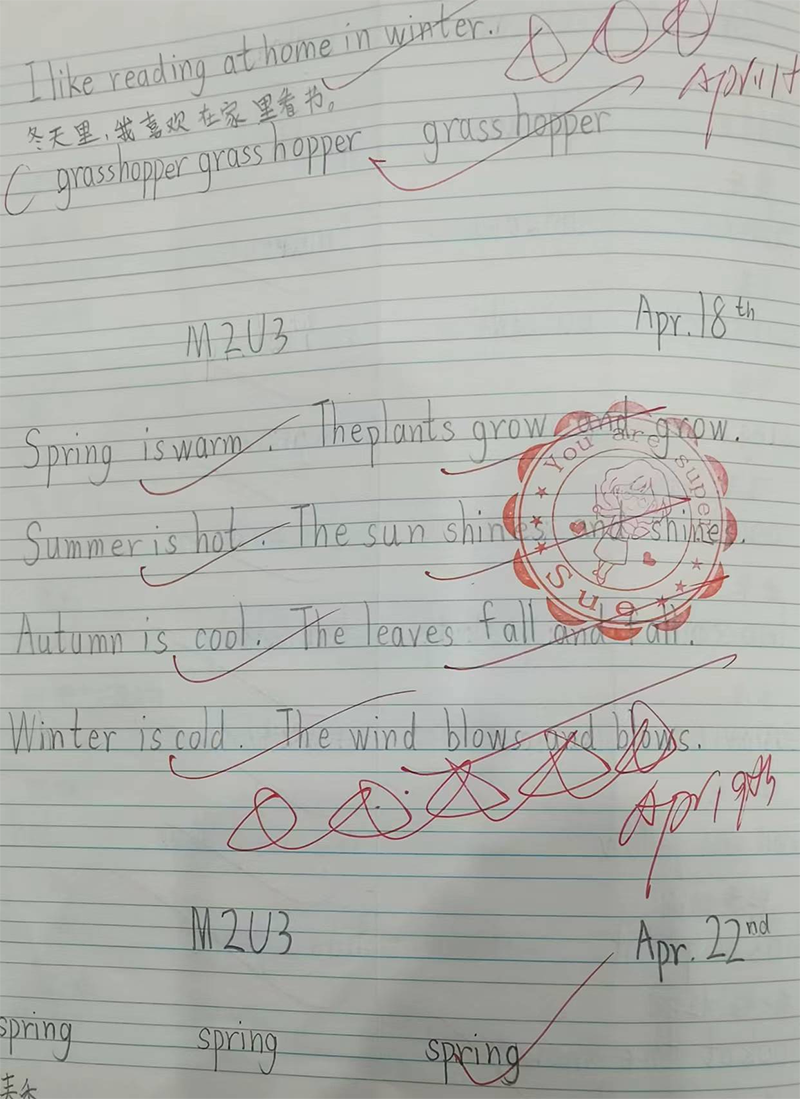 I like reading at home in winter.
冬天里，我喜欢在家里看书。
grasshopper grasshopper grasshopper
M2U3 Apr. 18th
Spring is warm. The plants grow and grow.
Summer is hot. The sun shines and shines.
Autumn is cool. The leaves fall and fall.
Winter is cold. The wind blows and blows.
You are super
Apr 19th
M2U3 Apr. 22nd
spring spring spring